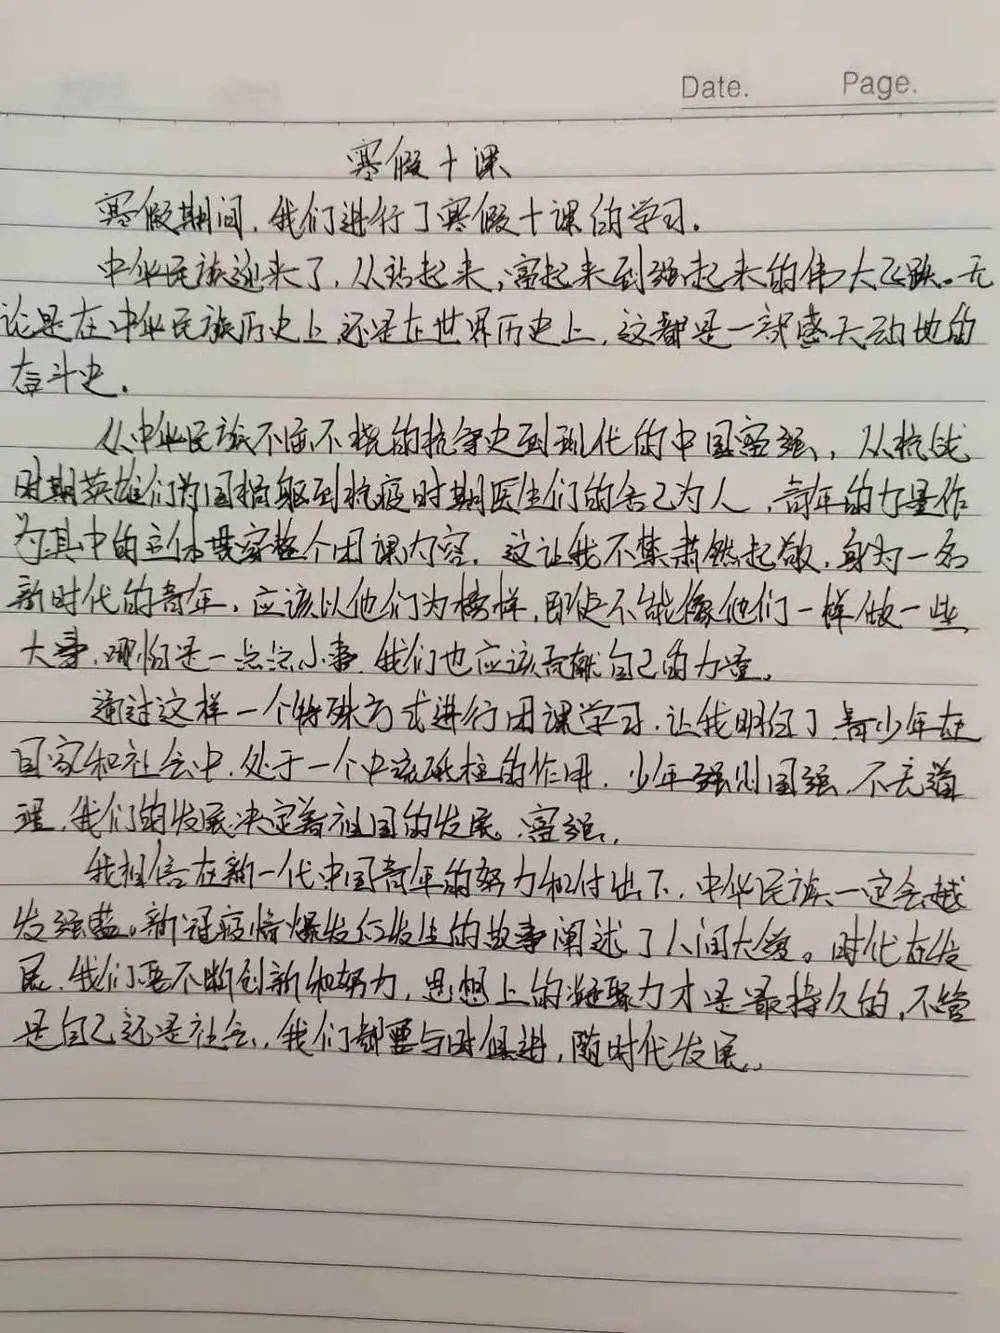 Date. Page.
寒假十课
寒假期间,我们进行了寒假十课的学习.
中华民族迎来了,从站起来,富起来到强起来的伟大飞跃。无
论是在中华民族历史上,还是在世界历史上,这都是一部感天动地的
奋斗史.
从中华民族不屈不挠的抗争史到现代的中国富强,从抗战
时期英雄们为国捐躯到抗疫时期医生们的舍己为人,青年的力量作
为其中的主体贯穿整个团课内容.这让我不禁肃然起敬,身为一名
新时代的青年,应该以他们为榜样,即使不能像他们一样做一些
大事,哪怕是一点点小事,我们也应该贡献自己的力量。
通过这样一个特殊方式进行团课学习,让我明白了青少年在
国家和社会中,处于一个中流砥柱的作用,少年强则国强,不无道
理,我们的发展决定着祖国的发展、富强.
我相信在新一代中国青年的努力和付出下,中华民族一定会越
发强盛。新冠疫情爆发后发生的故事阐述了人间大爱。时代在发
展,我们要不断创新和努力,思想上的凝聚力才是最持久的,不管
是自己还是社会,我们都要与时俱进,随时代发展。